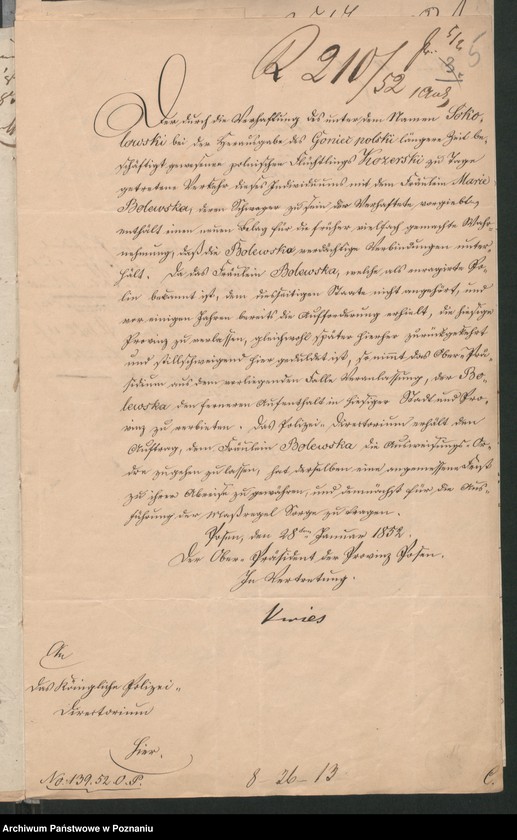 R 210/52
5/2
6
Der durch die Verhaftung des unter dem Namen Soko-
lowski bei der Herausgabe des Goniec polski längere Zeit be-
schäftigt gewesenen polnischen Flüchtlings Kozerski zu Tage
getretene Verkehr dieses Individuums mit dem Fräulein Marie
Bolewska, deren Schwager zu sein der Verhaftete vorgieblt,
enthält einen neuen Belag für die früher vielfach gemachte Wahr-
nehmung, daß die Bolewska verdächtige Verbindungen unter-
hält. Da das Fräulein Bolewska, welche als enragirte Po-
lin bekannt ist, dem diesseitigen Staate nicht angehört, und
vor einigen Jahren bereits die Aufforderung erhielt, die hiesige
Provinz zu verlassen, gleichwohl später hierher zurückgekehrt
und stillschweigend hier geduldet ist, so nimmt das Ober-Prä-
sidium aus dem vorliegenden Falle Veranlassung, der Bo-
lewska den ferneren Aufenthalt in hiesiger Stadt und Pro-
vinz zu verbieten. Das Polizei-Directorium erhält den
Auftrag, dem Fräulein Bolewska die Ausweisungs-Or-
dre zugehen zu lassen, hat derselben eine angemessene Frist
zu ihrer Abreise zu gewähren, und demnächst für die Aus-
führung der Maßregel Sorge zu tragen.
Posen, den 28ten Januar 1852.
Der Ober-Präsident der Provinz Posen.
In Vertretung.
Kries
An
das Königliche Polizei-
Directorium
Hier.
No. 139.52.O.P.
8 - 26 - 13
C.
Archiwum Państwowe w Poznaniu